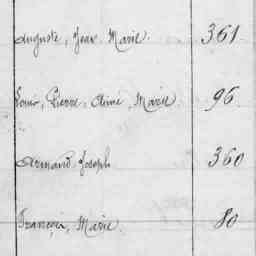 Auguste, Jean Marie. 361.
Louis, Pierre, Aimé, Marie. 96.
Armand Joseph 360
François, Marie. 80